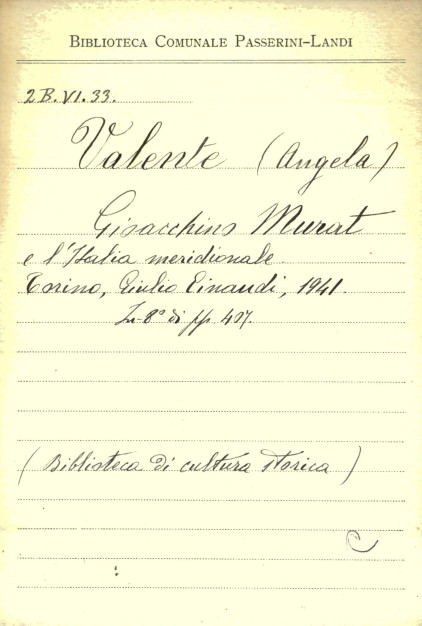 BIBLIOTECA COMUNALE PASSERINI-LANDI
2 B. VI. 33.
Valente (Angela)
Gioacchino Murat
e l'Italia meridionale.
Torino, Giulio Einaudi, 1941.
In-8° di pp. 407.
(Biblioteca di cultura storica)
C